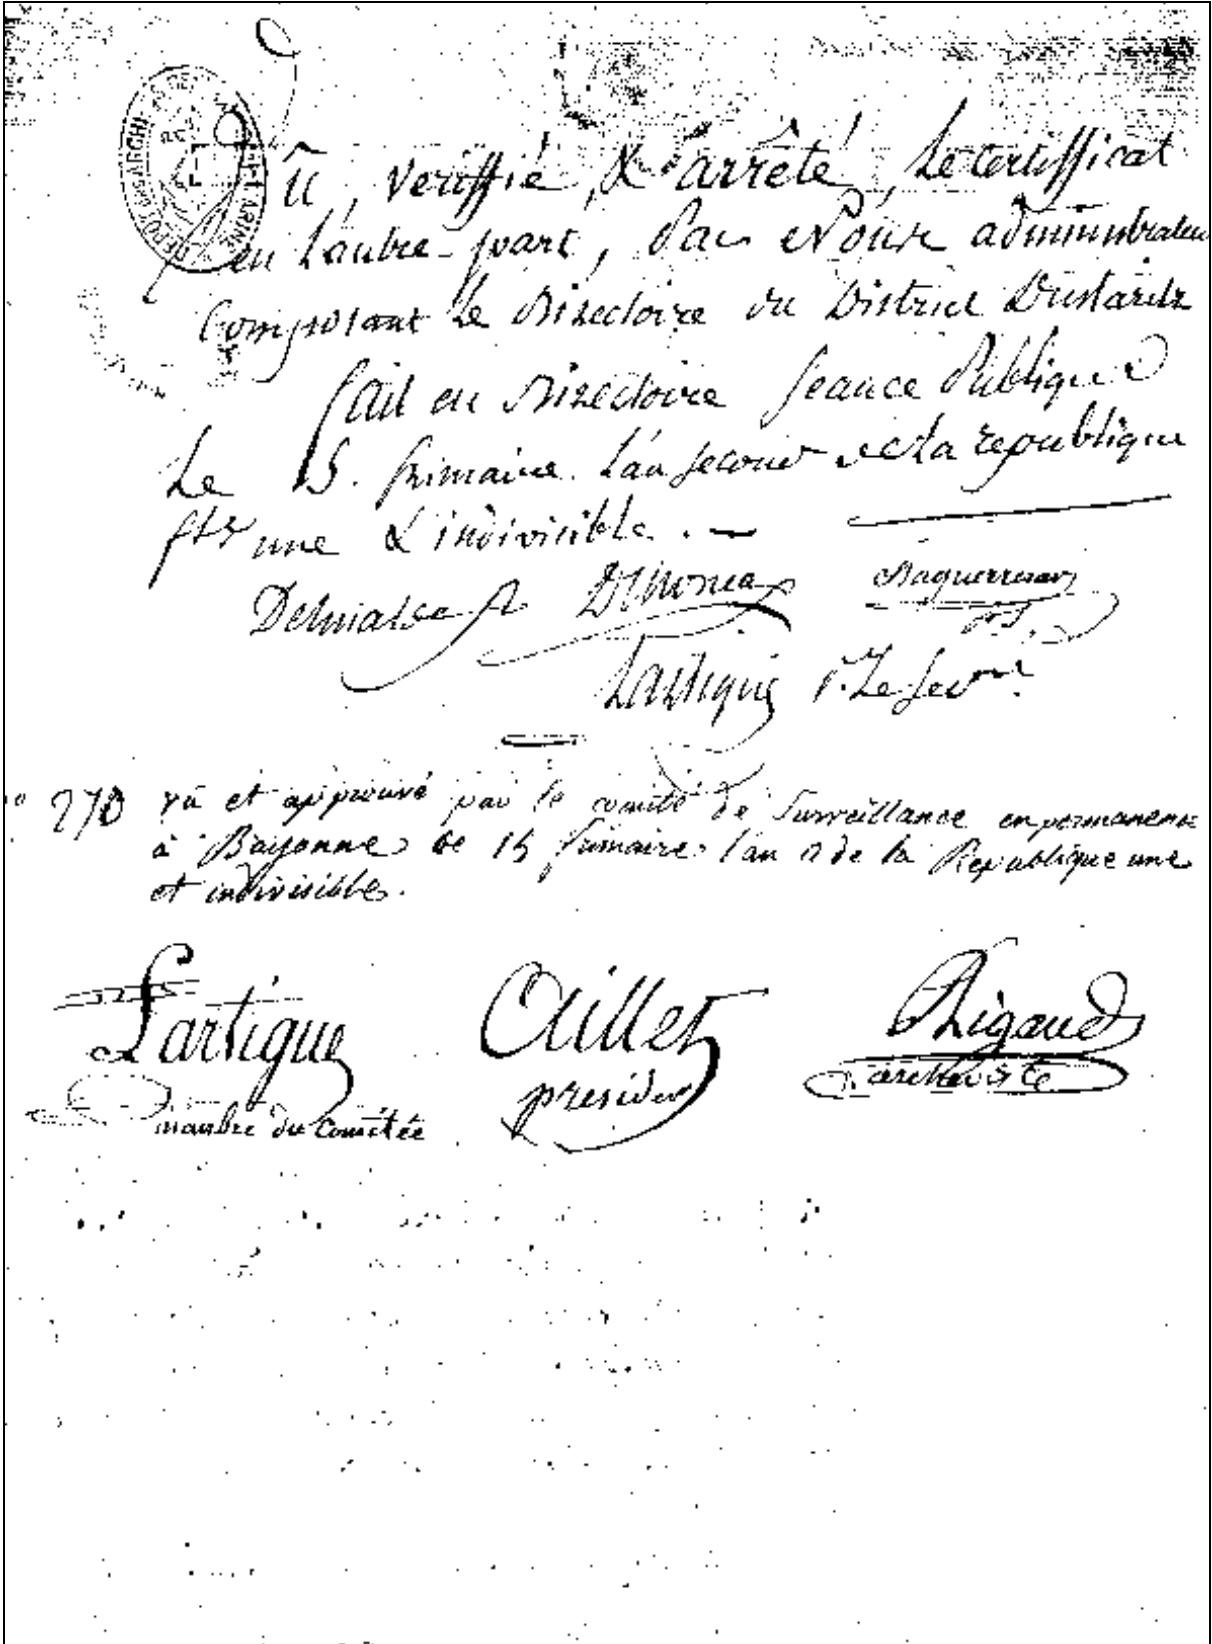 Vû, veriffié, & arrêté, Le certifficat
en L'autre part, Par Nous administrateurs
Composant Le Directoire du District Dustaritz
fait en Directoire seance Publique
Le 15. frimaire. L'an second de La republique
frse une & indivisible. —
Dhiriart
Lartigue
n° 278 vu et approuvé par le comité de Surveillance en permanence
à Bayonne le 15 frimaire l'an 2 de la Republique une
et indivisible.
Lartigue Oillet Rigaud
manbre du Comitée president archiviste